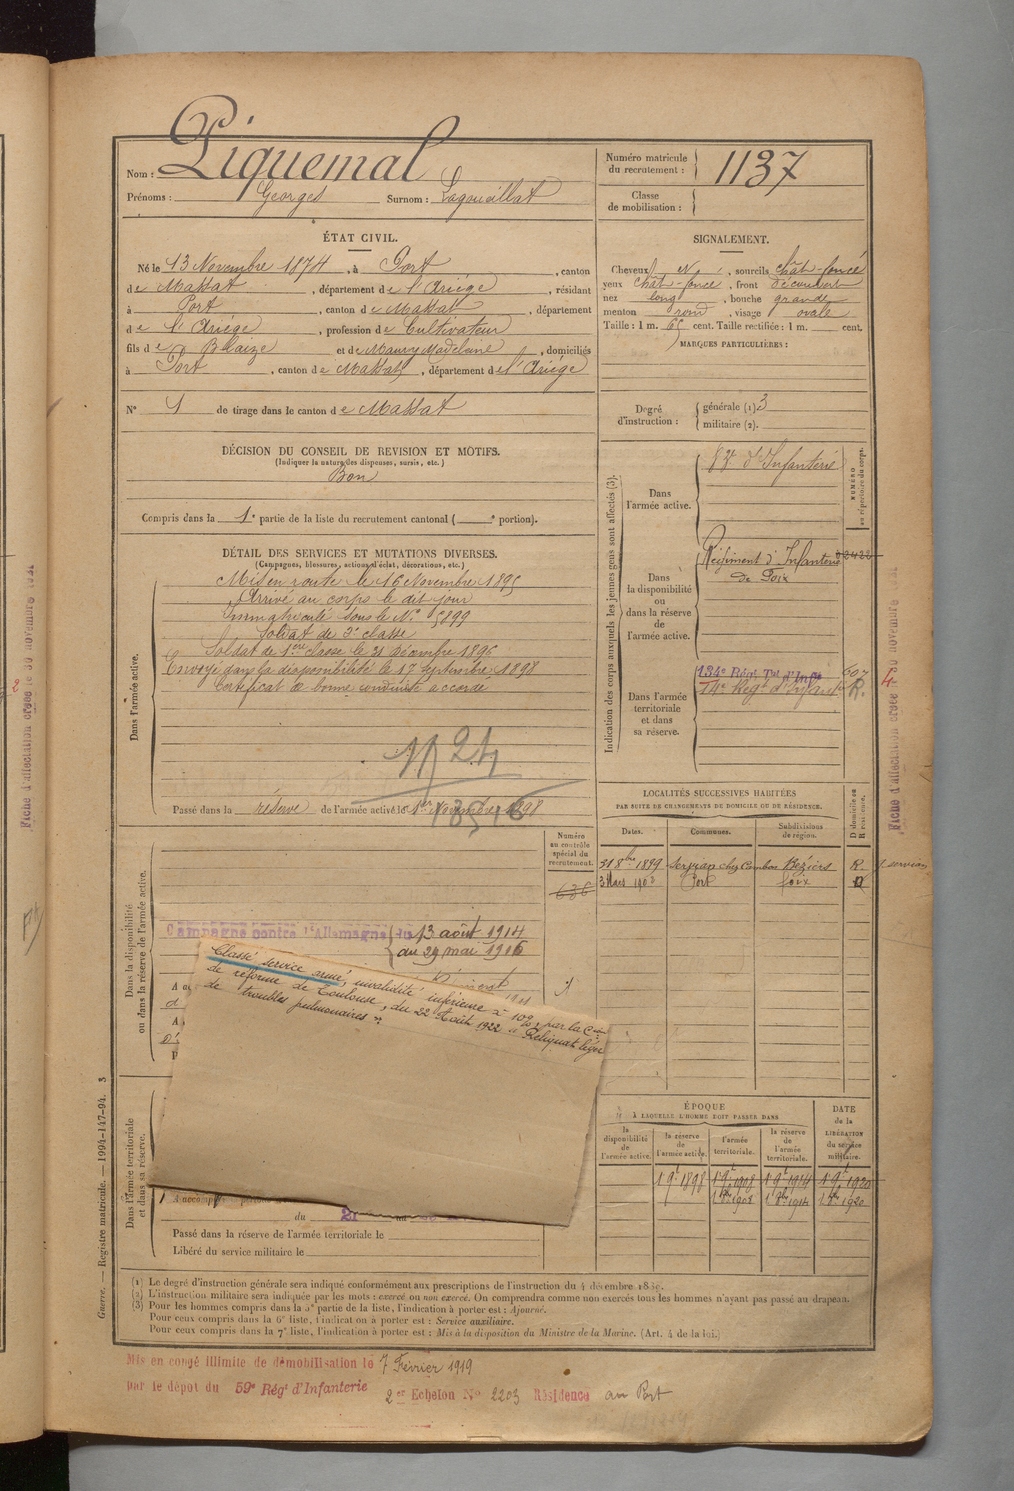 Nom : Piquemal
Prénoms : Georges Surnom : Lagouaillat
Numéro matricule du recrutement : 1137
Classe de mobilisation :
ÉTAT CIVIL.
Né le 13 Novembre 1874, à Port, canton
de Massat, département de l'Ariège, résidant
à Port, canton de Massat, département
de l'Ariège, profession de Cultivateur
fils de Blaize et de Maury Madeleine, domiciliés
à Port, canton de Massat, département de l'Ariège
N° 1 de tirage dans le canton de Massat
SIGNALEMENT.
Cheveux N, sourcils chât-foncé
yeux chât-foncé, front découvert
nez long, bouche grande
menton rond, visage ovale
Taille : 1 m. 65 cent. Taille rectifiée : 1 m. cent.
MARQUES PARTICULIÈRES :
Degré d'instruction : générale (1) 3
militaire (2).
DÉCISION DU CONSEIL DE REVISION ET MOTIFS.
(Indiquer la nature des dispenses, sursis, etc.)
Bon
Compris dans la 1e partie de la liste du recrutement cantonal ( e portion).
DÉTAIL DES SERVICES ET MUTATIONS DIVERSES.
(Campagnes, blessures, actions d'éclat, décorations, etc.)
Dans l'armée active.
Mis en route le 16 Novembre 1895
Arrivé au corps le dit jour
Immatriculé sous le N° 5899
Soldat de 2e classe
Soldat de 1ère classe le 21 Décembre 1896
Envoyé dans la disponibilité le 17 Septembre 1898
Certificat de bonne conduite accordé
Passé dans la réserve de l'armée active le 1er Novembre 1898
Indication des corps auxquels les jeunes gens sont affectés (3).
NUMÉRO au répertoire du corps.
Dans l'armée active.
d'Infanterie
Dans la disponibilité ou dans la réserve de l'armée active.
Régiment d'Infanterie
de Foix
Dans l'armée territoriale et dans sa réserve.
134e Régt Tal d'Infie
LOCALITÉS SUCCESSIVES HABITÉES
PAR SUITE DE CHANGEMENTS DE DOMICILE OU DE RÉSIDENCE.
Dates. Communes. Subdivisions de région. D domicile ou R résidence.
31 8bre 1899 Servian chez Cambon Béziers R.
3 Mars 1900 Port Foix D
Numéro au contrôle spécial du recrutement.
636
Dans la disponibilité ou dans la réserve de l'armée active.
Campagne contre l'Allemagne du 13 août 1914
au 29 mai 1916
Classé service armé, invalidité inférieure à 10%, par la Con
de réforme de Toulouse, du 22 Août 1922 « Reliquat léger
de troubles pulmonaires ».
Dans l'armée territoriale et dans sa réserve.
A accompli
du 21 au
Passé dans la réserve de l'armée territoriale le
Libéré du service militaire le
ÉPOQUE
À LAQUELLE L'HOMME DOIT PASSER DANS
la disponibilité de l'armée active. la réserve de l'armée active. l'armée territoriale. la réserve de l'armée territoriale.
DATE de la LIBÉRATION du service militaire.
1 9e 1898 1 9e 1908 1 9e 1914 1 9e 1920
(1) Le degré d'instruction générale sera indiqué conformément aux prescriptions de l'instruction du 4 décembre 1889.
(2) L'instruction militaire sera indiquée par les mots : exercé ou non exercé. On comprendra comme non exercés tous les hommes n'ayant pas passé au drapeau.
(3) Pour les hommes compris dans la 5e partie de la liste, l'indication à porter est : Ajourné.
Pour ceux compris dans la 6e liste, l'indication à porter est : Service auxiliaire.
Pour ceux compris dans la 7e liste, l'indication à porter est : Mis à la disposition du Ministre de la Marine. (Art. 4 de la loi.)
Guerre. — Registre matricule. — 1994-147-94. 3
Mis en congé illimité de démobilisation le 7 Février 1919
par le dépôt du 59e Régt d'Infanterie
2e Echelon No 2203 Résidence au Port